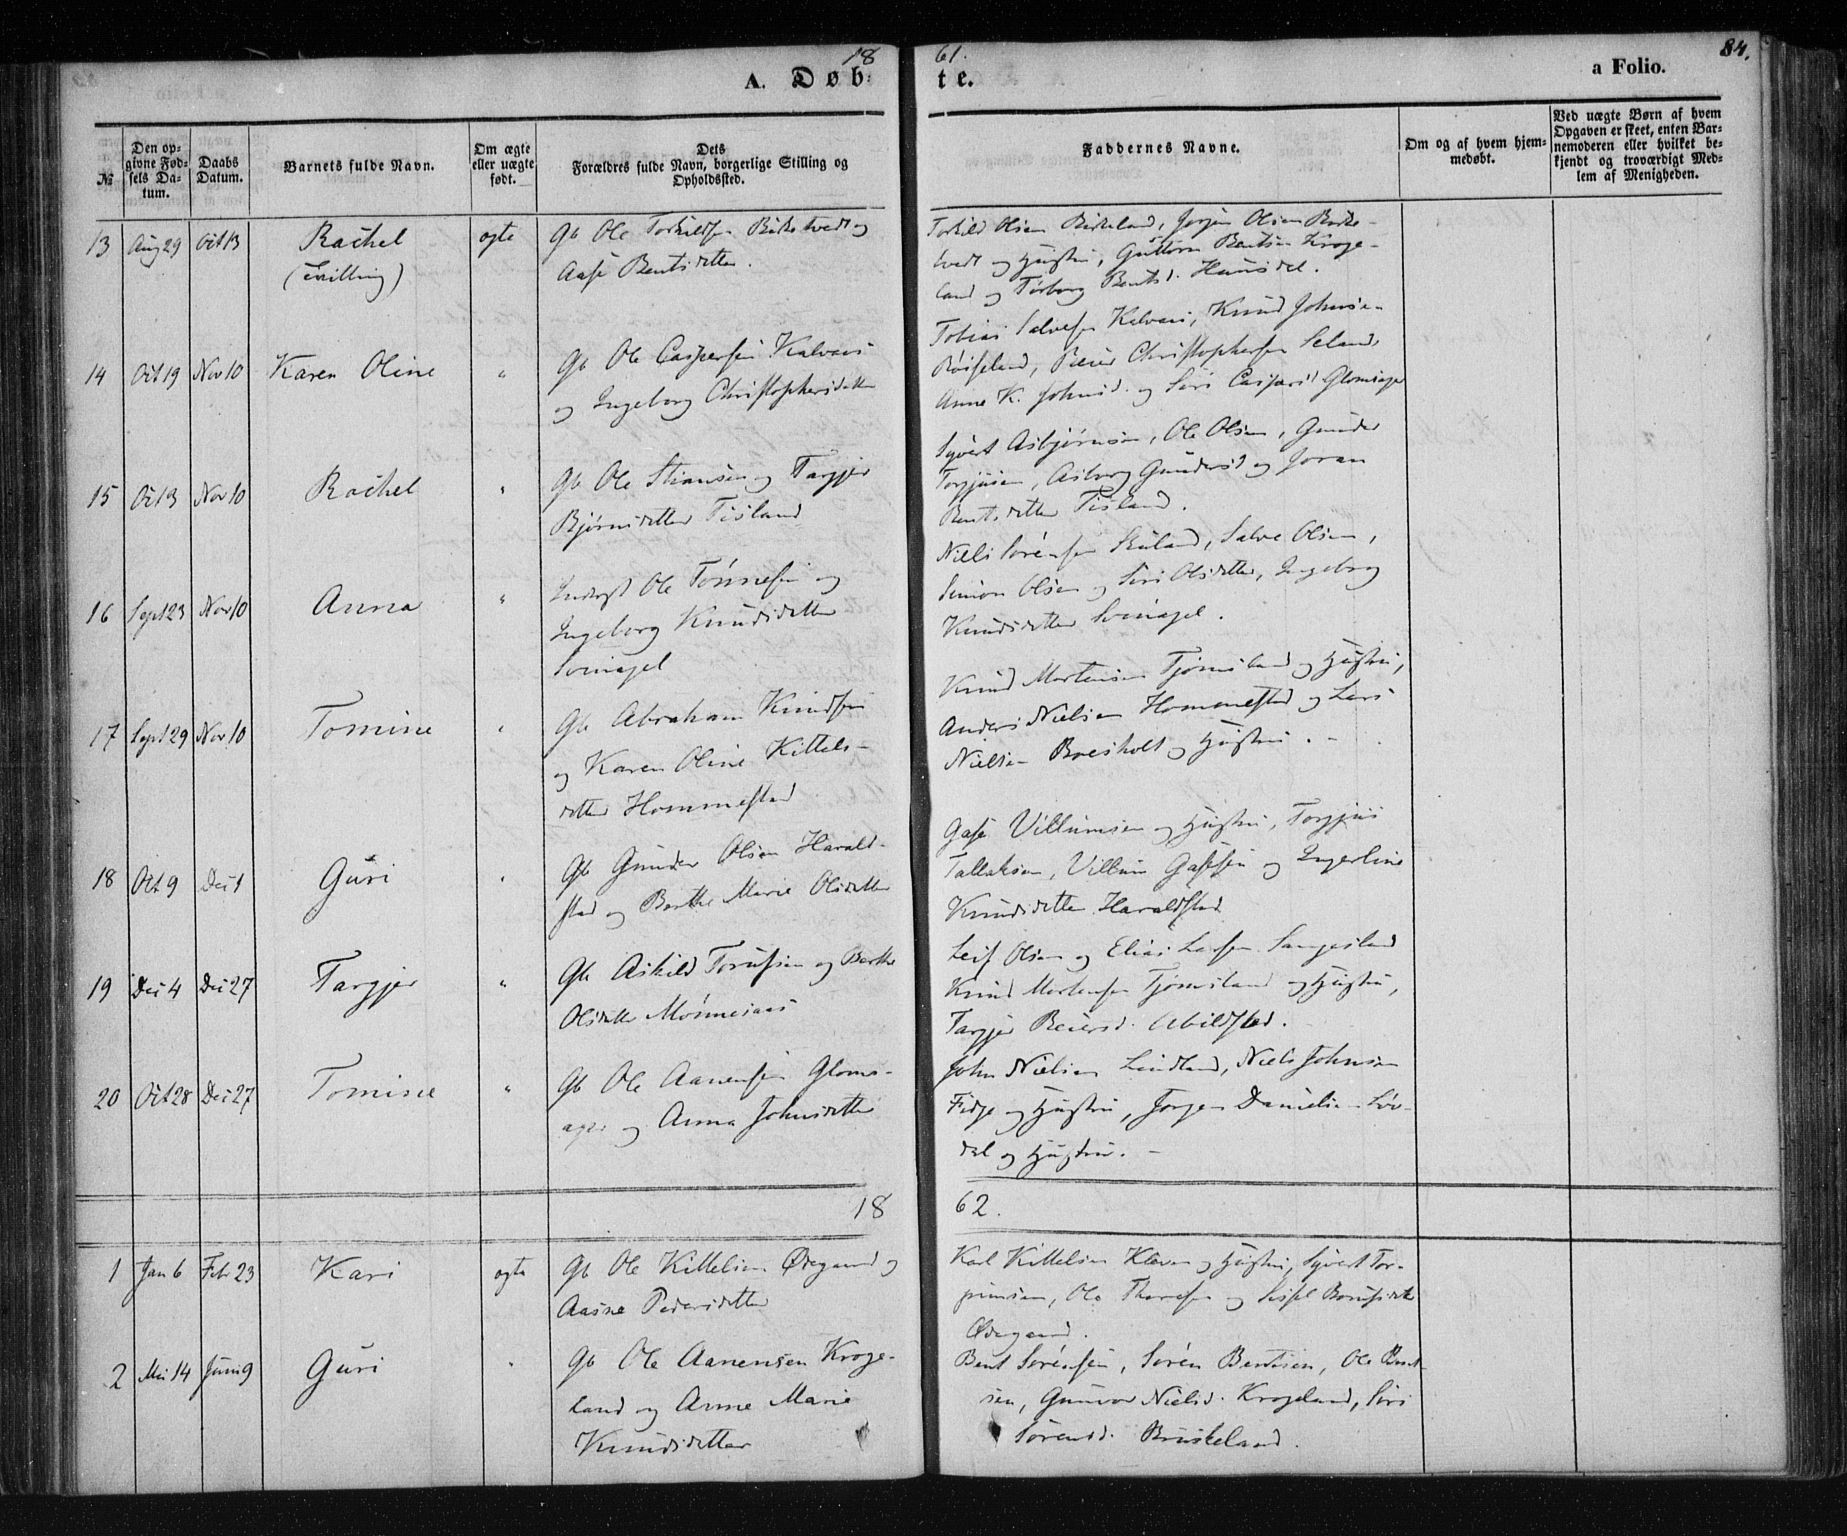 18 61. 84.
A. Døb: te. a Folio.
№ Den opgivne Fødsels Datum. Daabs Datum. Barnets fulde Navn. Om ægte eller uægte født. Dets Forældres fulde Navn, borgerlige Stilling og Opholdssted. Faddernes Navne. Om og af hvem hjemmedøbt. Ved uægte Børn af hvem Opgaven er skeet, enten Barnemoderen eller hvilket bekjendt og troværdigt Medlem af Menigheden.
13 Aug 29 Oct 13 Rachel ægte Gb Ole Torkildsen Birketvedt og
(tvilling) Aase Bentsdatter.
Torkild Olsen Birkeland, Jørgen Olsen Birke-
tvedt og Hustru, Guttorm Bentsen Kroge-
land og Torborg Bentsd. Hunsdal.
14 Oct 19 Nov 10 Karen Oline " Gb Ole Caspersen Kalvaas
og Ingeborg Christophersdatter
Tobias Salvesen Kalvaas, Knud Johnsen
Røiseland, Peder Christophersen Seland
Anne K. Johnsd. og Siri Caspersd Glomsager
15 Oct 3 Nov 10 Rachel " Gb Ole Stiansen og Targjer
Bjørnsdatter Tisland
Syvert Asbjørnsen, Ole Olsen, Gunder
Torgjusen, Asborg Gundersd og Joran
Bentsdatter Tisland.
16 Sept 23 Nov 10 Anna " Inderst Ole Tønnesen og
Ingeborg Knudsdatter
Niels Sørensen Skuland, Salve Olsen,
Simon Olsen og Siri Olsdatter, Ingeborg
Knudsdatter
17 Sept 29 Nov 10 Tomine " Gb Abraham Knudsen
og Karen Oline Kittels-
datter Hommestad
Knud Mortensen Tjomsland og Hustru,
Anders Nielsen Hommestad og Lars
Nielsen Boesholt og Hustru.
18 Oct 9 Dec 1 Guri " Gb Gunder Olsen Harald-
stad og Berthe Marie Olsdatter
Gase Villumsen og Hustru, Torgjus
Tallaksen, Villum Gasesen og Ingerline
Knudsdatter Haraldstad
19 Dec 4 Dec 27 Targjer " Gb Askild Torusen og Berthe
Olsdatter Mønnesaas
Leif Olsen og Elias Leifsen Sangesland
Knud Mortensen Tjomsland og Hustru,
Targjer Reiersd. Abildsted.
20 Oct 28 Dec 27 Tomine " Gb Ole Aanensen Gloms-
ager og Anna Johnsdatter
John Nielsen Lindland, Niels Johnsen
Fidje og Hustru, Jørgen Danielsen Løv-
dal og Hustru.
18 62.
1 Jan 6 Febr 23 Kari ægte Gb Ole Kittelsen Ødegaard og
Aasne Pedersdatter
Karl Kittelsen Kleven og Hustru, Syvert Tor-
jensen, Ole Tharesen og Sissel
Ødegaard.
2 Mai 14 Juni 9 Guri " Gb Ole Aanensen Kroge-
land og Anne Marie
Knudsdatter
Bent Sørensen, Søren Bentsen, Ole Bent-
sen, Gunvor Nielsd. Krogeland, Siri
Sørensd. Bruskeland.